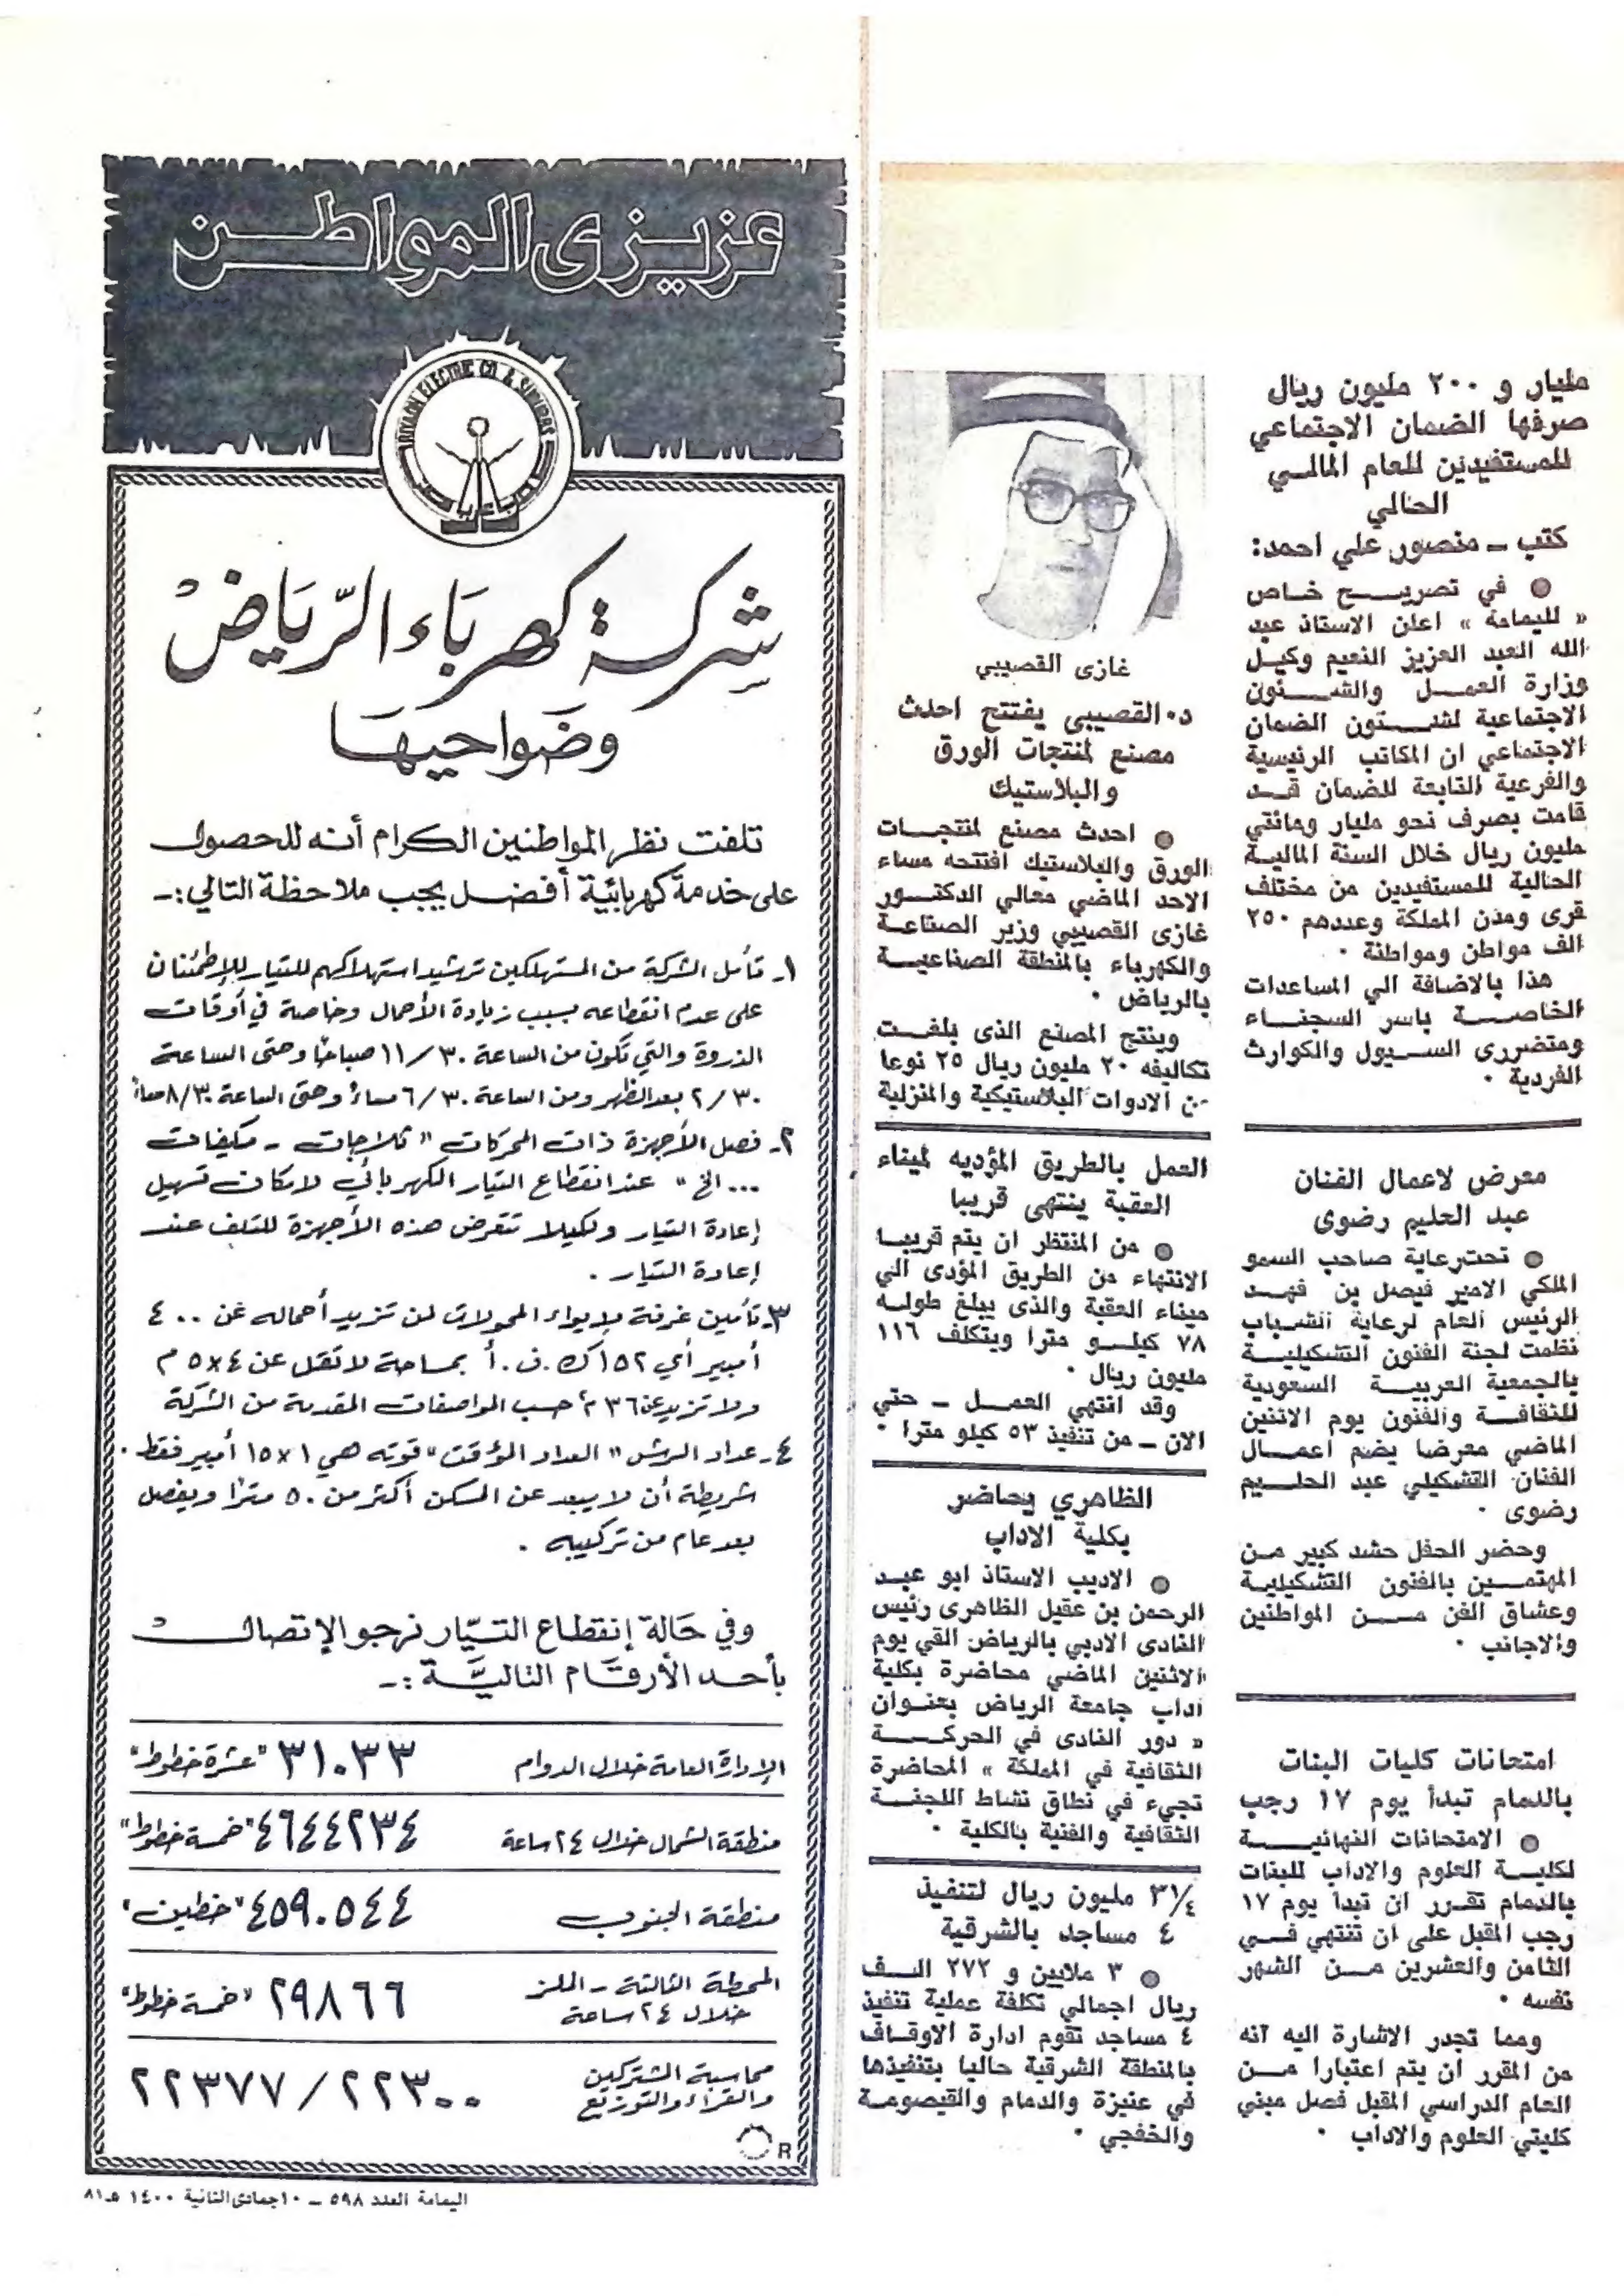 مليار و ٢٠٠ مليون ريال
صرفها الضمان الاجتماعي
للمستفيدين للعام المالـي
الحالي
كتب ـ منصور علي احمد:
● في تصريـــح خـاص
« لليمامة » اعلن الاستاذ عبد
الله العبد العزيز النعيم وكيـل
وزارة العمـــل والشـــئون
الاجتماعية لشـــئون الضمان
الاجتماعي ان المكاتب الرئيسية
والفرعية التابعة للضمان قـد
قامت بصرف نحو مليار ومائتي
مليون ريال خلال السنة الماليـة
الحالية للمستفيدين من مختلف
قرى ومدن المملكة وعددهم ٢٥٠
الف مواطن ومواطنة .
هذا بالاضافة الي المساعدات
الخاصـــة باسر السجنـاء
ومتضررى السـيول والكوارث
الفردية .
معرض لاعمال الفنان
عبد الحليم رضوى
● تحت رعاية صاحب السمو
الملكي الامير فيصل بن فهـد
الرئيس العام لرعاية الشـباب
نظمت لجنة الفنون التشكيليـة
بالجمعية العربيـة السعودية
للثقافـة والفنون يوم الاثنين
الماضي معرضا يضم اعمـال
الفنان التشكيلي عبد الحليـم
رضوى .
وحضر الحفل حشد كبير مـن
المهتمـين بالفنون التشكيليـة
وعشاق الفن مـــن المواطنين
والاجانب .
امتحانات كليات البنات
بالدمام تبدأ يوم ١٧ رجب
● الامتحانات النهائيـــة
لكليـة العلوم والاداب للبنات
بالدمام تقـرر ان تبدأ يوم ١٧
رجب المقبل على ان تنتهي فـي
الثامن والعشرين مـن الشهر
نفسه .
ومما تجدر الاشارة اليه انه
من المقرر ان يتم اعتبارا مـن
العام الدراسي المقبل فصل مبني
كليتي العلوم والاداب .
غازى القصيبي
د. القصيبى يفتتح احدث
مصنع لمنتجات الورق
والبلاستيك
● احدث مصنع لمنتجـات
الورق والبلاستيك افتتحه مساء
الاحد الماضي معالي الدكتـور
غازى القصيبي وزير الصناعـة
والكهرباء بالمنطقة الصناعيـة
بالرياض .
وينتج المصنع الذى بلغـت
تكاليفه ٢٠ مليون ريال ٢٥ نوعا
من الادوات البلاستيكية والمنزلية
العمل بالطريق المؤديه لميناء
العقبة ينتهى قريبا
● من المنتظر ان يتم قريبـا
الانتهاء من الطريق المؤدى الي
ميناء العقبة والذى يبلغ طولـه
٧٨ كيلـو مترا ويتكلف ١١٦
مليون ريال .
وقد انتهي العمـل ـ حتي
الان ـ من تنفيذ ٥٣ كيلو مترا .
الظاهري يحاضر
بكلية الاداب
● الاديب الاستاذ ابو عبـد
الرحمن بن عقيل الظاهرى رئيس
النادى الادبي بالرياض القي يوم
الاثنين الماضي محاضرة بكلية
اداب جامعة الرياض بعنـوان
« دور النادى في الحركـــة
الثقافية في المملكة » المحاضرة
تجيء في نطاق نشاط اللجنـة
الثقافية والفنية بالكلية .
٣¼ مليون ريال لتنفيذ
٤ مساجد بالشرقية
● ٣ ملايين و ٢٧٢ الـف
ريال اجمالي تكلفة عملية تنفيذ
٤ مساجد تقوم ادارة الاوقـاف
بالمنطقة الشرقية حاليا بتنفيذها
في عنيزة والدمام والقيصومـة
والخفجي .
عزيزى المواطن
RIYADH ELECTRIC CO. & SUBURBS
شركة كهرباء الرياض
وضواحيها
تلفت نظر المواطنين الكرام أنه للحصول
على خدمة كهربائية أفضل يجب ملاحظة التالي:ـ
١ـ تأمل الشركة من المستهلكين ترشيد استهلاكهم للتيار للإطمئنان
على عدم انقطاعه بسبب زيادة الأحمال وخاصة في أوقات
الذروة والتي تكون من الساعة ١١/٣٠ صباحًا وحتى الساعة
٢/٣٠ بعد الظهر ومن الساعة ٦/٣٠ مساءً وحتى الساعة ٨/٣٠ مساءً
٢ـ فصل الأجهزة ذات المحركات " ثلاجات ـ مكيفات
... الخ " عند انقطاع التيار الكهربائي لإمكان تسهيل
إعادة التيار ولكيلا تتعرض هذه الأجهزة للتلف عند
إعادة التيار .
٣ـ تأمين غرفة لإيواء المحولات لمن تزيد أحماله عن ٤٠٠
أمبير أي ١٥٢ ك.ف.أ بمساحة لا تقل عن ٤×٥ م
ولا تزيد عن ٣٦ م٢ حسب المواصفات المقدمة من الشركة
٤ـ عداد الرش " العداد المؤقت " قوته هي ١×١٥ أمبير فقط .
شريطة أن لا يبعد عن المسكن أكثر من ٥٠ مترًا ويفصل
بعد عام من تركيبه .
وفي حالة إنقطاع التيّار نرجو الإتصال
بأحد الأرقام التاليّة :ـ
الإدارة العامة خلال الدوام ٣١٠٣٣ "عشرة خطوط"
منطقة الشمال خلال ٢٤ ساعة ٤٦٤٤٢٣٤ "خمسة خطوط"
منطقة الجنوب ٤٥٩٠٥٤٤ "خطين"
المحطة الثالثة ـ الملز
خلال ٢٤ ساعة ٢٩٨٦٦ "خمسة خطوط"
محاسبة المشتركين
والقراء والتوزيع ٢٢٣٠٠ / ٢٢٣٧٧
R
اليمامة العدد ٥٩٨ ـ ١٠ جمادى الثانية ١٤٠٠ هـ ٨١